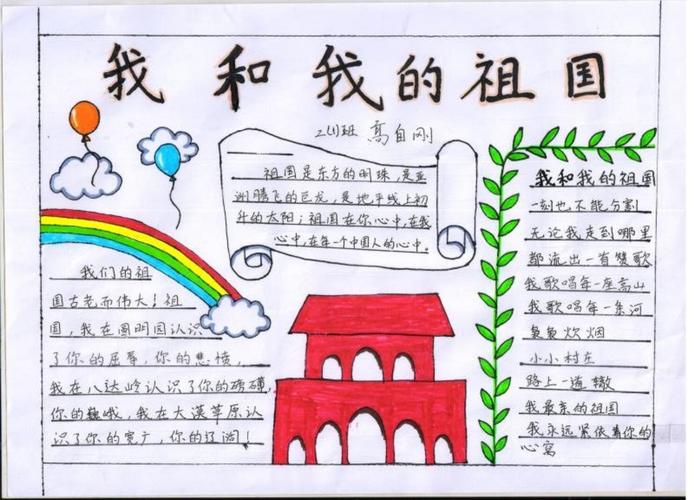 我和我的祖国
二(1)班 高自刚
祖国是东方的明珠,是亚
洲腾飞的巨龙,是地平线上初
升的太阳;祖国在你心中,在我
心中,在每一个中国人的心中。
我们的祖
国古老而伟大!祖
国,我在圆明园认识
了你的屈辱,你的悲愤,
我在八达岭认识了你的
你的巍峨,我在大漠草原认
识了你的宽广,你的辽阔!
我和我的祖国
一刻也不能分割
无论我走到哪里
都流出一首赞歌
我歌唱每一座高山
我歌唱每一条河
袅袅炊烟
小小村庄
路上一道辙
我最亲的祖国
我永远紧依着你的
心窝